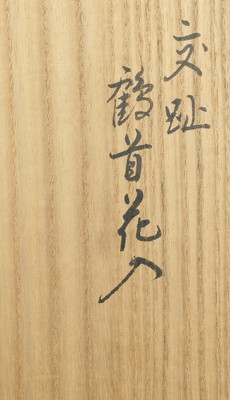 交趾
鶴首花入